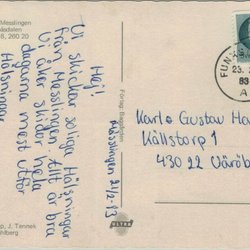 Messlingen
8, 260 20
Hej!
Vi skickar soliga hälsningar
från Messlingen. Allt är bra
Vi åker skidor hela
dagarna mest utför
Hälsningar
Messlingen 21/2 83
Förlag:
FUN
23.
83
A
Karl Gustav
Källstorp 1
430 22 Väröb
p, J. Tennek
hlberg